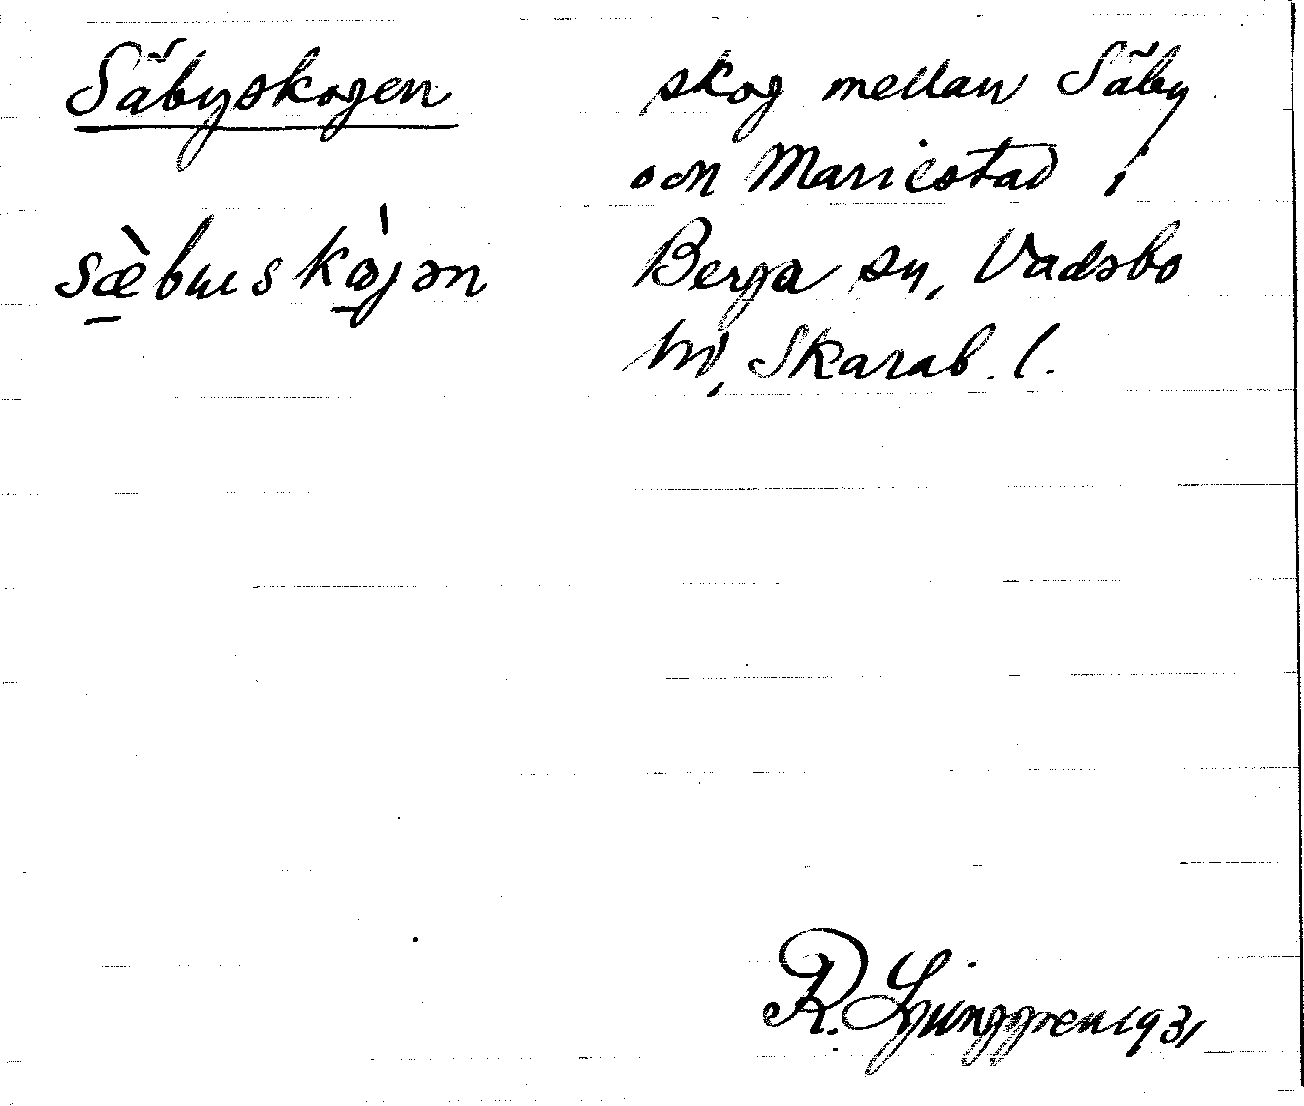 Säbyskogen
sæ̀buskòjən
skog mellan Säby
och Mariestad i
Berga sn, Vadsbo
hd, Skarab. l.
R. Ljunggren 1931